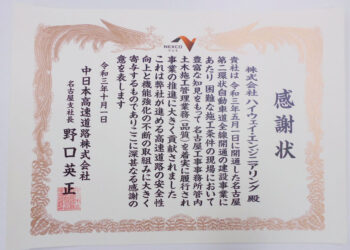 NEXCO
感謝状
株式会社ハイウェイ・エンジニアリング 殿
貴社は令和三年五月一日に開通した名古屋
第二環状自動車道全線開通の建設事業に
あたり困難な施工条件の現場において
豊富な知見をもって名古屋工事事務所管内
土木施工管理業務(品質)を着実に履行され
事業の推進に大きく貢献されました
これは弊社が進める高速道路の安全性
向上と機能強化の不断の取組みに大きく
寄与するものでありここに深甚なる感謝の
意を表します
令和三年十月一日
中日本高速道路株式会社
名古屋支社長 野口英正